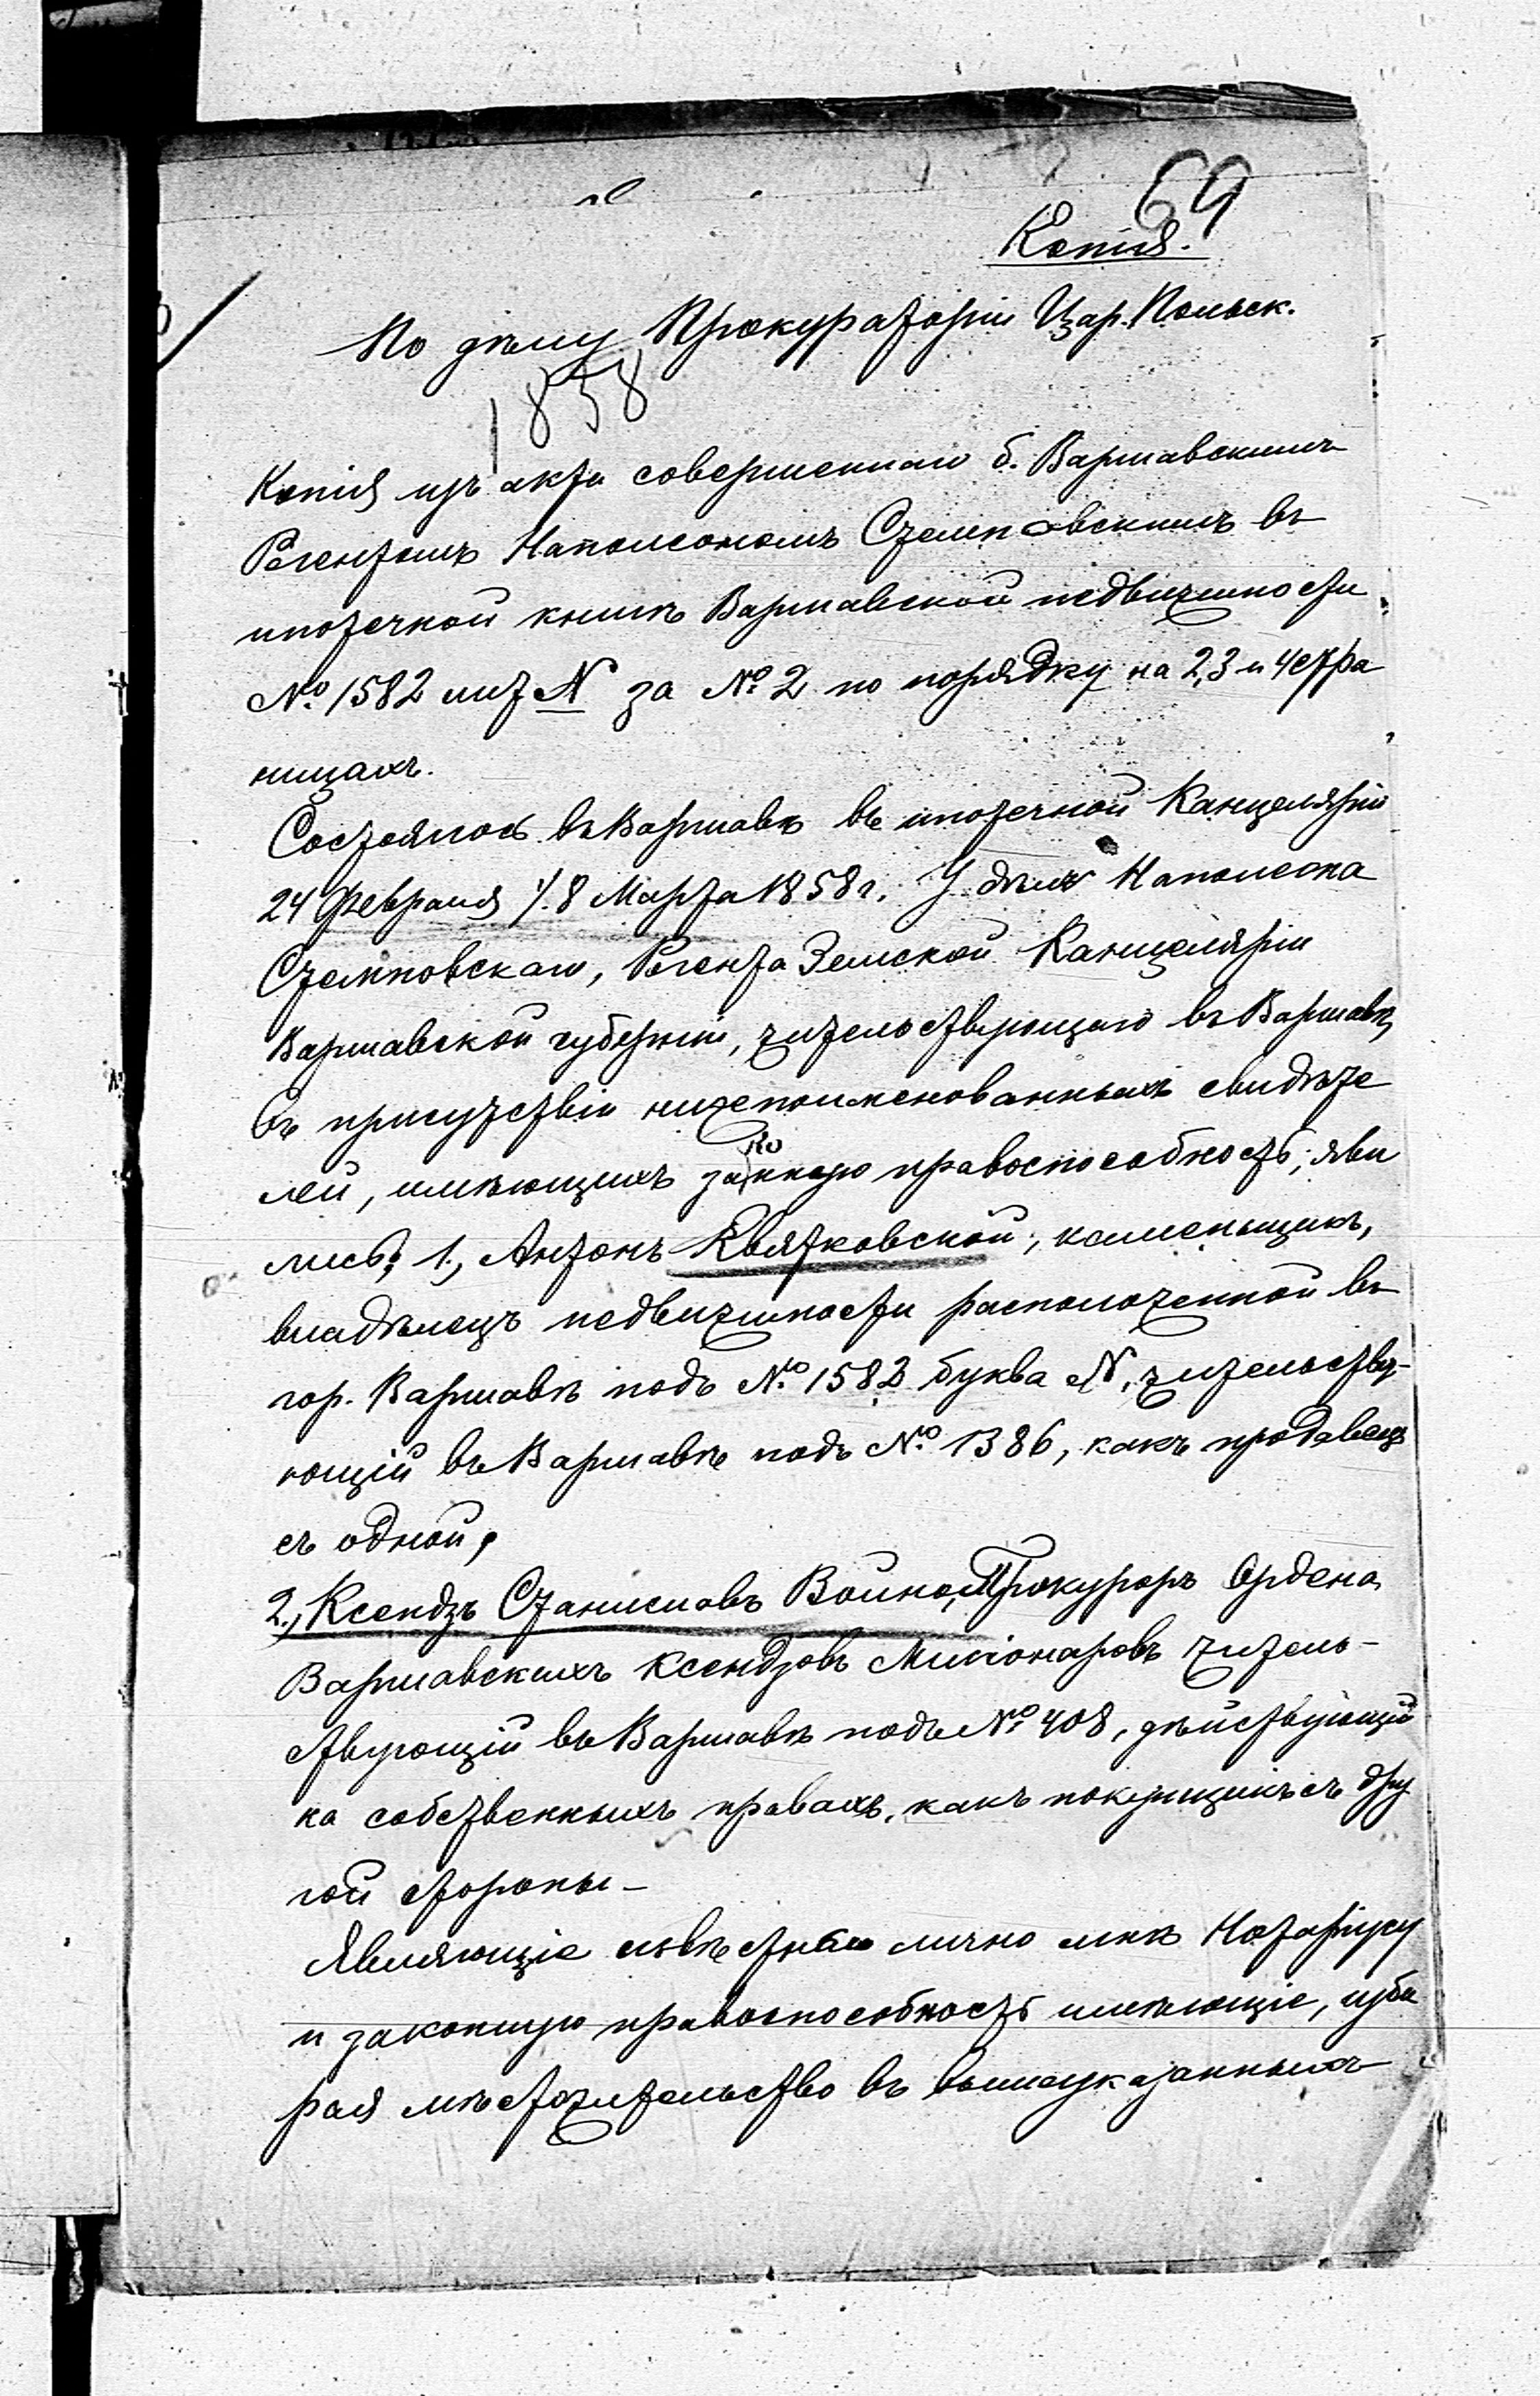 69
Копія.
По дѣлу Прокураторіи Цар. Польск.
1858
Копія изъ акта совершеннаго б. Варшавскимъ
Регентомъ Наполеономъ Стемповскимъ въ
ипотечной книгѣ Варшавской недвижимости
№ 1582 лит N за № 2 по порядку на 2, 3 и 4 стра
ницахъ.
Состоялось въ Варшавѣ въ ипотечной Канцеляріи
24 Февраля /. 8 Марта 1858 г. У дѣлъ Наполеона
Стемповскаго, Регента Земской Канцеляріи
Варшавской губерніи, жительствующаго въ Варшавѣ,
въ присутствіи нижепоименованныхъ свидѣте
лей, имѣющихъ законную правоспособность, яви
лись: 1., Антонъ Квятковской, каменьщикъ,
владѣлецъ недвижимости расположенной въ
гор. Варшавѣ подъ № 1582 буква N, жительству-
ющій въ Варшавѣ подъ № 1386, какъ продавецъ
съ одной,
2., Ксендзъ Станиславъ Война, Прокуроръ Ордена
Варшавскихъ Ксендзовъ Мисіонаровъ житель-
ствующій въ Варшавѣ подъ № 408, дѣйствующій
на собственныхъ правахъ, какъ покупщикъ съ дру
гой стороны —
Являющіе извѣстные лично мнѣ Нотаріусу
и законную правоспособность имѣющіе, изби
рая мѣстожительство въ вышеуказанныхъ